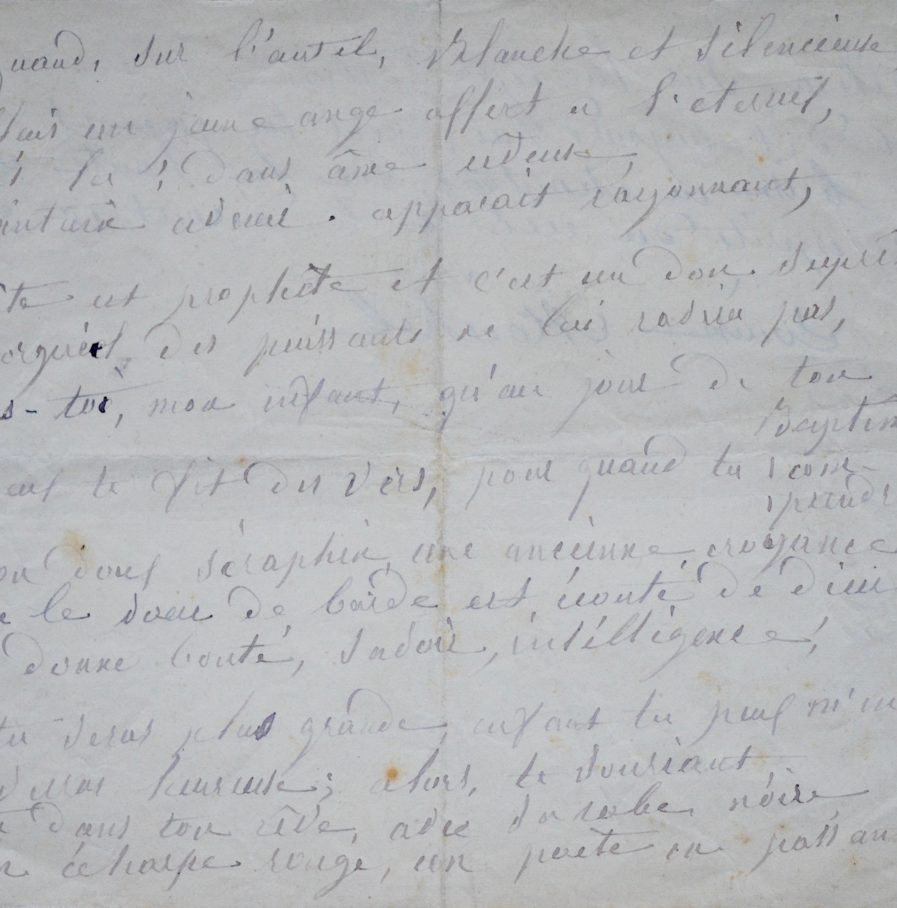 quand, sur l'autel, Blanche et silencieuse
étais un jeune ange offert a l'eternel,
lu; dans âme rêveuse,
avenir. apparait rayonnant,
est prophête et c'est un don suprê
orgueil des puissants ne lui ravira pas,
s-toi, mon enfant, qu'au jour de ton
Baptêm
te fit des vers, pour quand tu com-
prendr
on doux séraphin, une ancienne croyance
le vœu de barde est écouté de dieu
donne bonté, savoir, intélligence,
tu seras plus grande, enfant tu peux m'en
seras heureuse; alors, te souriant
dans ton rêve, avec sa robe noire
écharpe rouge, un poete en passan